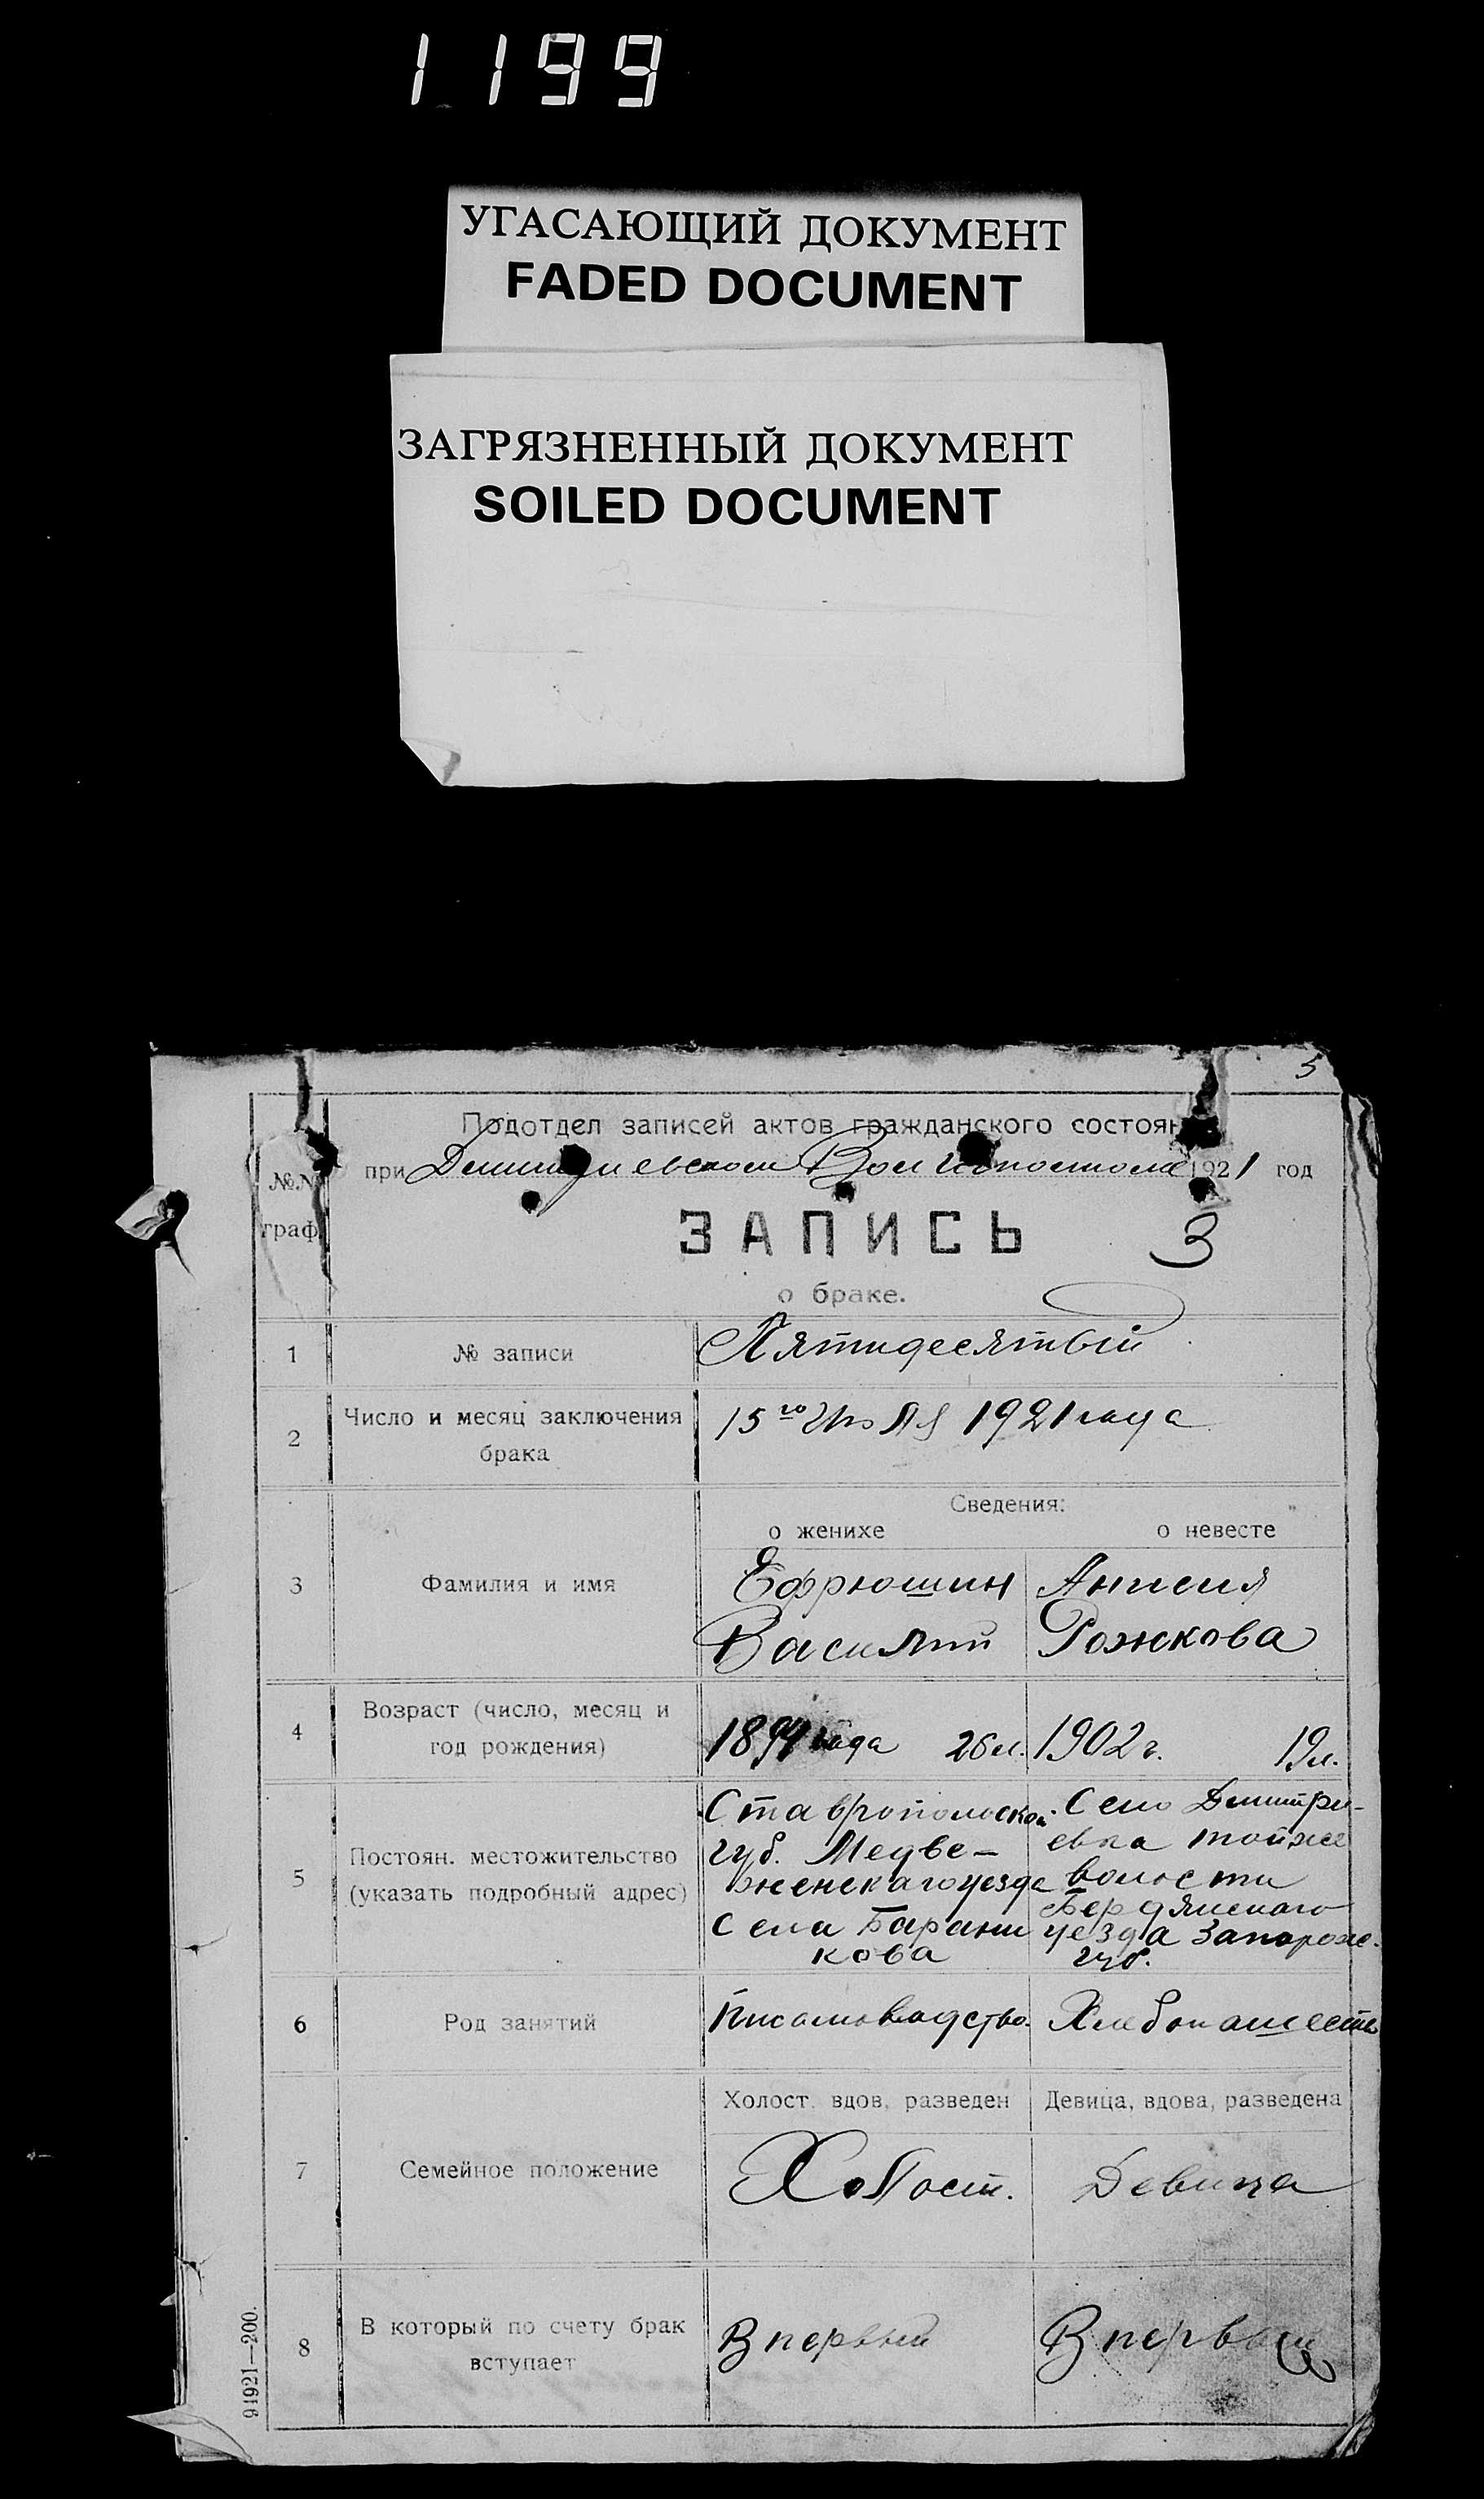 1199
УГАСАЮЩИЙ ДОКУМЕНТ
FADED DOCUMENT
ЗАГРЯЗНЕННЫЙ ДОКУМЕНТ
SOILED DOCUMENT
5
Подотдел записей актов гражданского состоян
при 1921 год
№№
граф.
ЗАПИСЬ 3
о браке.
1 № записи Пятидесятый
2 Число и месяц заключения
брака
15го Июля 1921 года
Сведения:
о женихе о невесте
3 Фамилия и имя
Ефрюшин Анисия
Василий Рожкова
4 Возраст (число, месяц и
год рождения)
года 26 л. 1902 г. 19 л.
5 Постоян. местожительство
(указать подробный адрес)
Ставропольской
губ. Медве-
женскаго уезда
Села Барани
кова
Село Дмитри-
евка тойже
волости
Бердянскаго
уезда Запорож.
губ.
6 Род занятий
Письмоводство. Хлебопашеств
Холост, вдов, разведен Девица, вдова, разведена
7 Семейное положение
Холост. Девица
8 В который по счету брак
вступает
В первый В первый
91921—200.